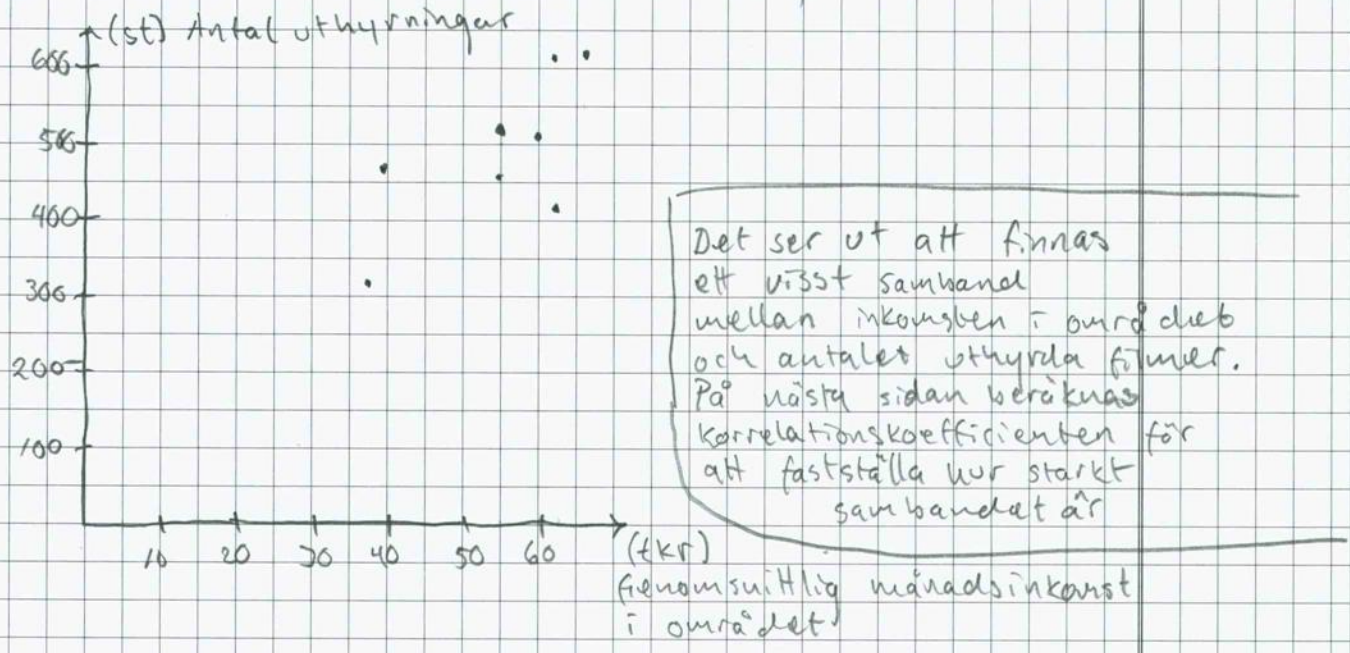 (st) Antal uthyrningar
600
500
400
300
200
100
10 20 30 40 50 60 (tkr)
Genomsnittlig månadsinkomst
i området
Det ser ut att finnas
ett visst samband
mellan inkomsten i området
och antalet uthyrda filmer.
På nästa sidan beräknas
korrelationskoefficienten för
att fastställa hur starkt
sambandet är